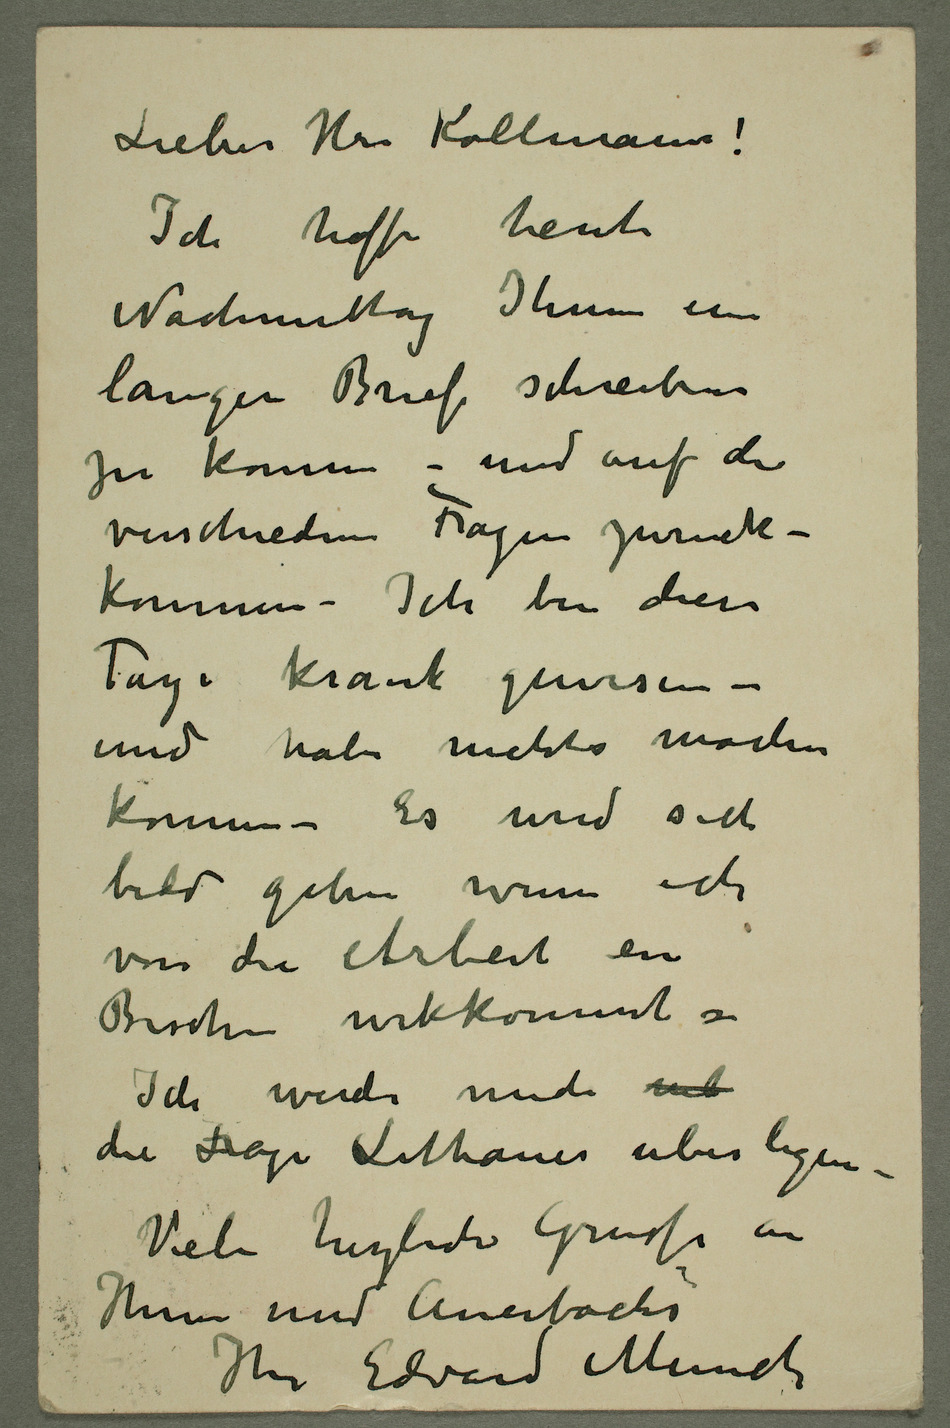 Lieber Herr Kollmann!
Ich hoffe heute
Nachmittag Ihnen ein
langen Brief schreiben
zu konnen – und auf die
verschiedene Fragen zuruck-
kommen – Ich bin diese
Tage krank gewesen –
und habe nichts machen
konnen – Es wird sich
bald geben wenn ich
von die Arbeit ein
Bischen wekkommt –
Ich werde mich
die Frage Lithauer uberlegen –
Viele herzliche Grusse an
Ihnen und Auerbachs
Ihr Edvard Munch